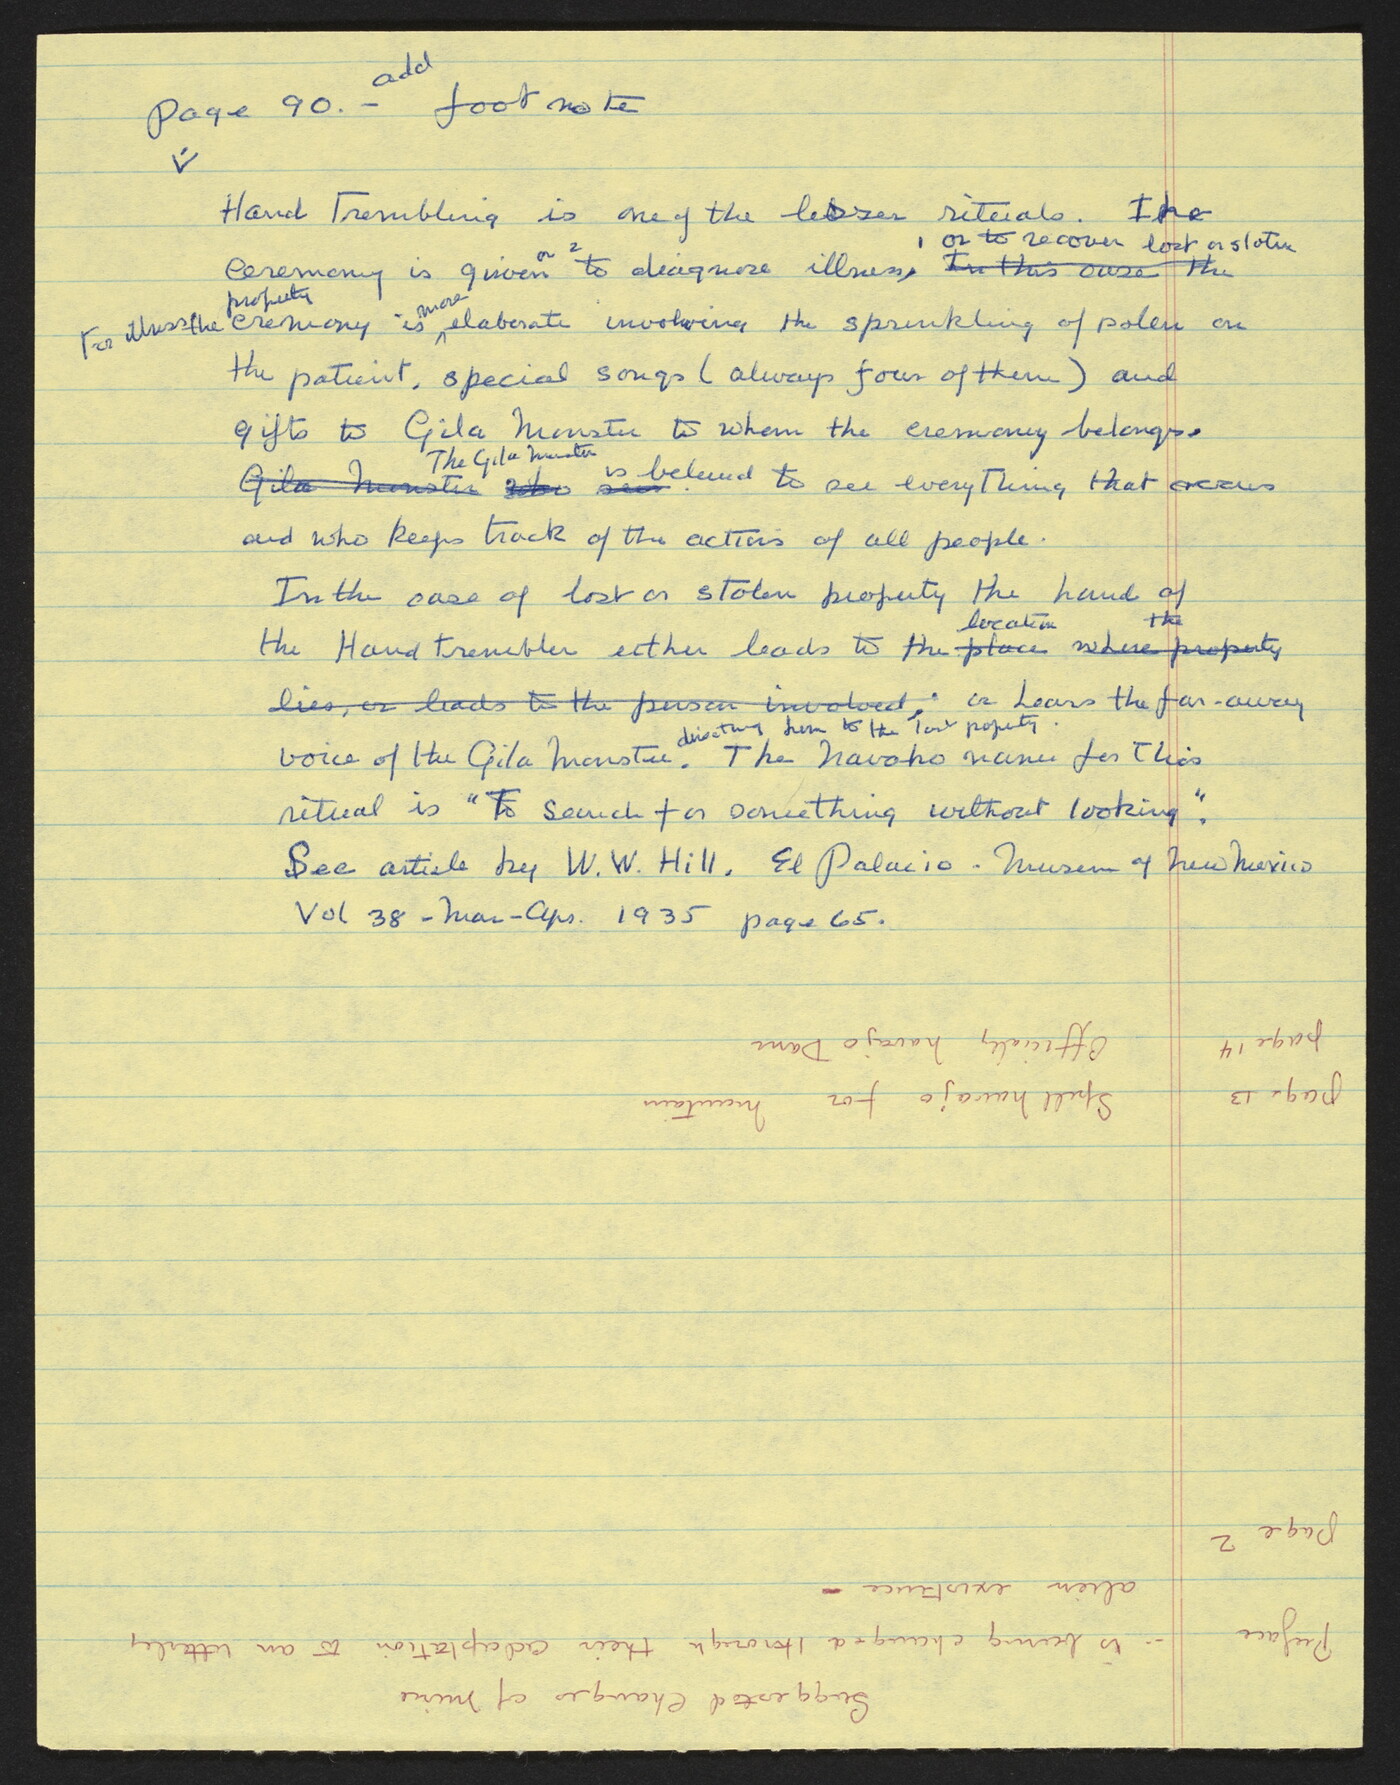 add
Page 90. - foot note
Hand Trembling is one of the lesser rituals. The
or 2 1 or to recover lost or stolen
ceremony is given to diagnose illness, In this case the
property more
For illness the ceremony is elaborate involving the sprinkling of polen on
the patient, special songs (always four of them) and
gifts to Gila Monster to whom the ceremony belongs.
The Gila Monster is
Gila Monster who sees belived to see everything that occurs
and who keeps track of the actions of all people.
In the case of lost or stolen property the hand of
location the
the Hand trembler either leads to the place where property
lies, or leads to the person involved, or hears the far-away
directing him to the lost property.
voice of the Gila Monster. The Navaho name for this
ritual is "To search for something without looking".
See article by W.W. Hill. El Palacio - Museum of New Mexico
Vol 38 - Mar-Apr. 1935 page 65.
Suggested Changes of mine
Preface -- is being changed through their adaptation to an utterly
alien existence -
page 2
page 13 Spell navajo for mountain
page 14 Officially navajo Dam